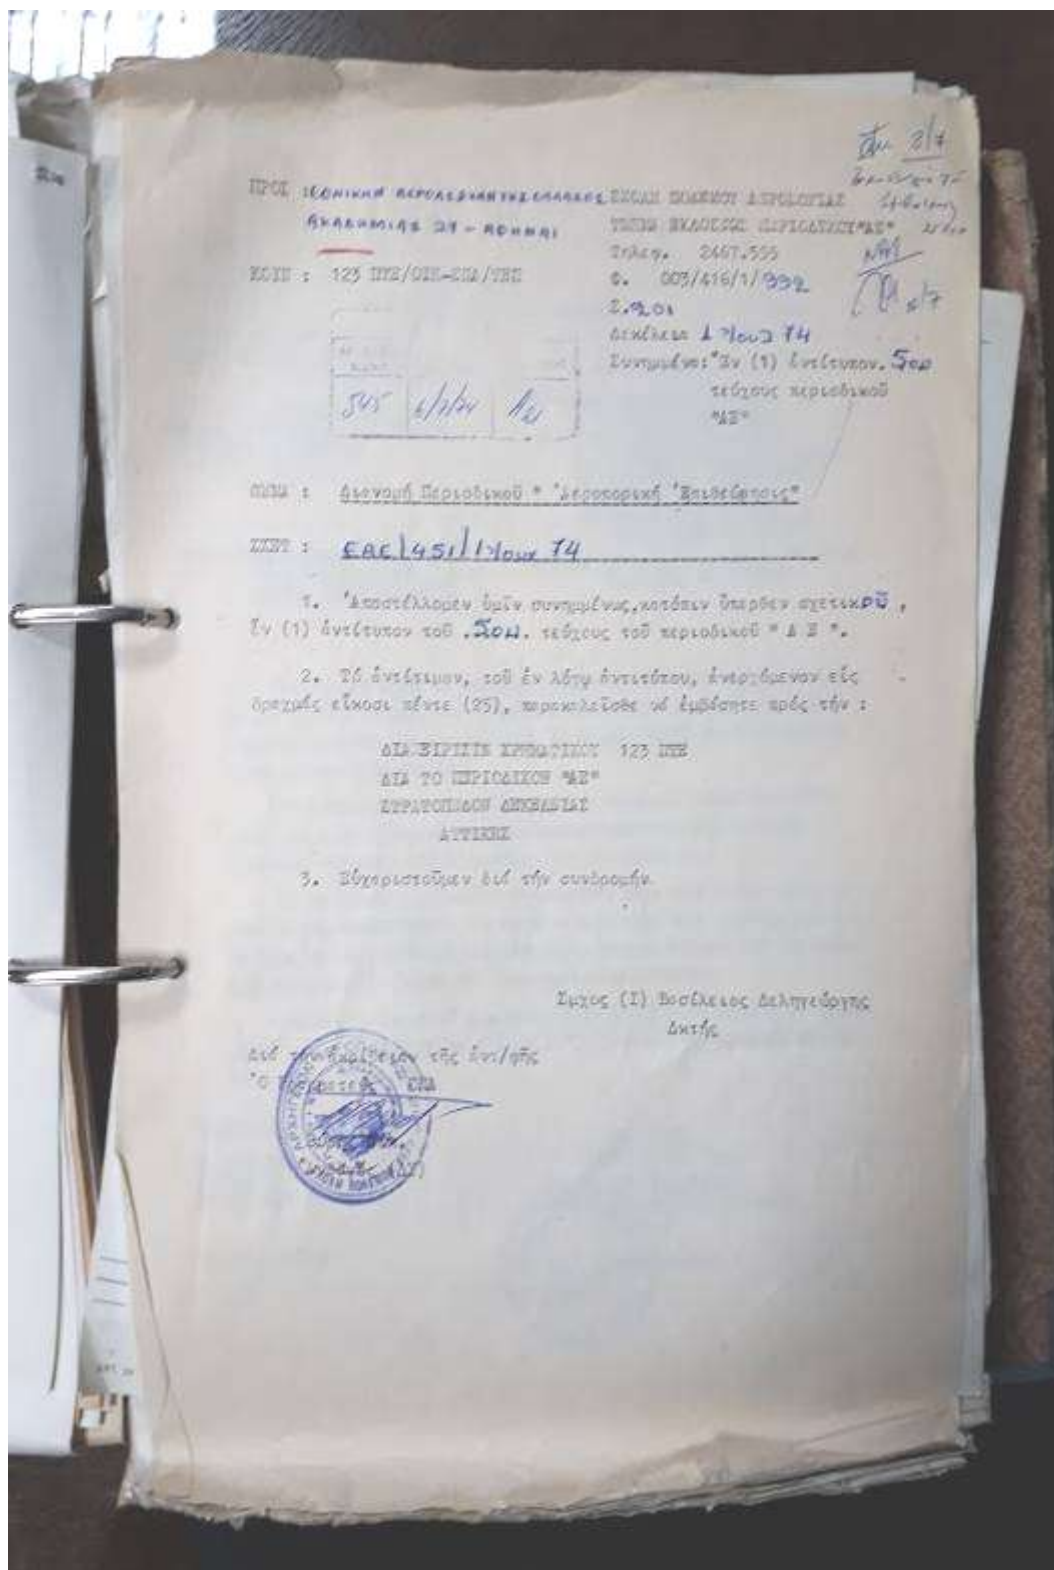 ΠΡΟΣ : ΕΘΝΙΚΗΝ ΑΕΡΟΛΕΣΧΗΝ ΤΗΣ ΕΛΛΑΔΟΣ
ΑΚΑΔΗΜΙΑΣ 27 - ΑΘΗΝΑΙ
ΚΟΙΝ : 123 ΠΥΕ/ΟΙΚ-ΕΠΑ/ΤΗΣ
ΣΧΟΛΗ ΠΟΛΕΜΟΥ ΑΕΡΟΠΟΡΙΑΣ
ΤΜΗΜΑ ΕΚΔΟΣΕΩΣ ΠΕΡΙΟΔΙΚΟΥ "ΑΕ"
Τηλεφ. 2467.555
Φ. 003/416/1/992
Σ.201
Δεκέλεια 1 Ιουλ 74
Συνημμένα: Ἕν (1) ἀντίτυπον. 5ου
τεύχους περιοδικοῦ
"ΑΕ"
545 6/7/74
ΘΕΜΑ : Διανομή Περιοδικοῦ " Ἀεροπορική Ἐπιθεώρησις"
ΣΧΕΤ : ΕΑΕ/451/1 Ιουλ 74
1. Ἀποστέλλομεν ὑμῖν συνημμένως, κατόπιν ὕπερθεν σχετικοῦ ,
ἕν (1) ἀντίτυπον τοῦ .5ου. τεύχους τοῦ περιοδικοῦ " Α Ε ".
2. Τό ἀντίτιμον, τοῦ ἐν λόγῳ ἀντιτύπου, ἀνερχόμενον εἰς
δραχμάς εἴκοσι πέντε (25), παρακαλεῖσθε νά ἐμβάσητε πρός τήν :
ΔΙΑΧΕΙΡΙΣΙΝ ΧΡΗΜΑΤΙΚΟΥ 123 ΠΥΕ
ΔΙΑ ΤΟ ΠΕΡΙΟΔΙΚΟΝ "ΑΕ"
ΣΤΡΑΤΟΠΕΔΟΝ ΔΕΚΕΛΕΙΑΣ
ΑΤΤΙΚΗΣ
3. Εὐχαριστοῦμεν διά τήν συνδρομήν.
Σμχος (Ι) Βασίλειος Δεληγεώργης
Δκτής
Διά τήν ἀκρίβειαν τῆς ἀντ/φῆς